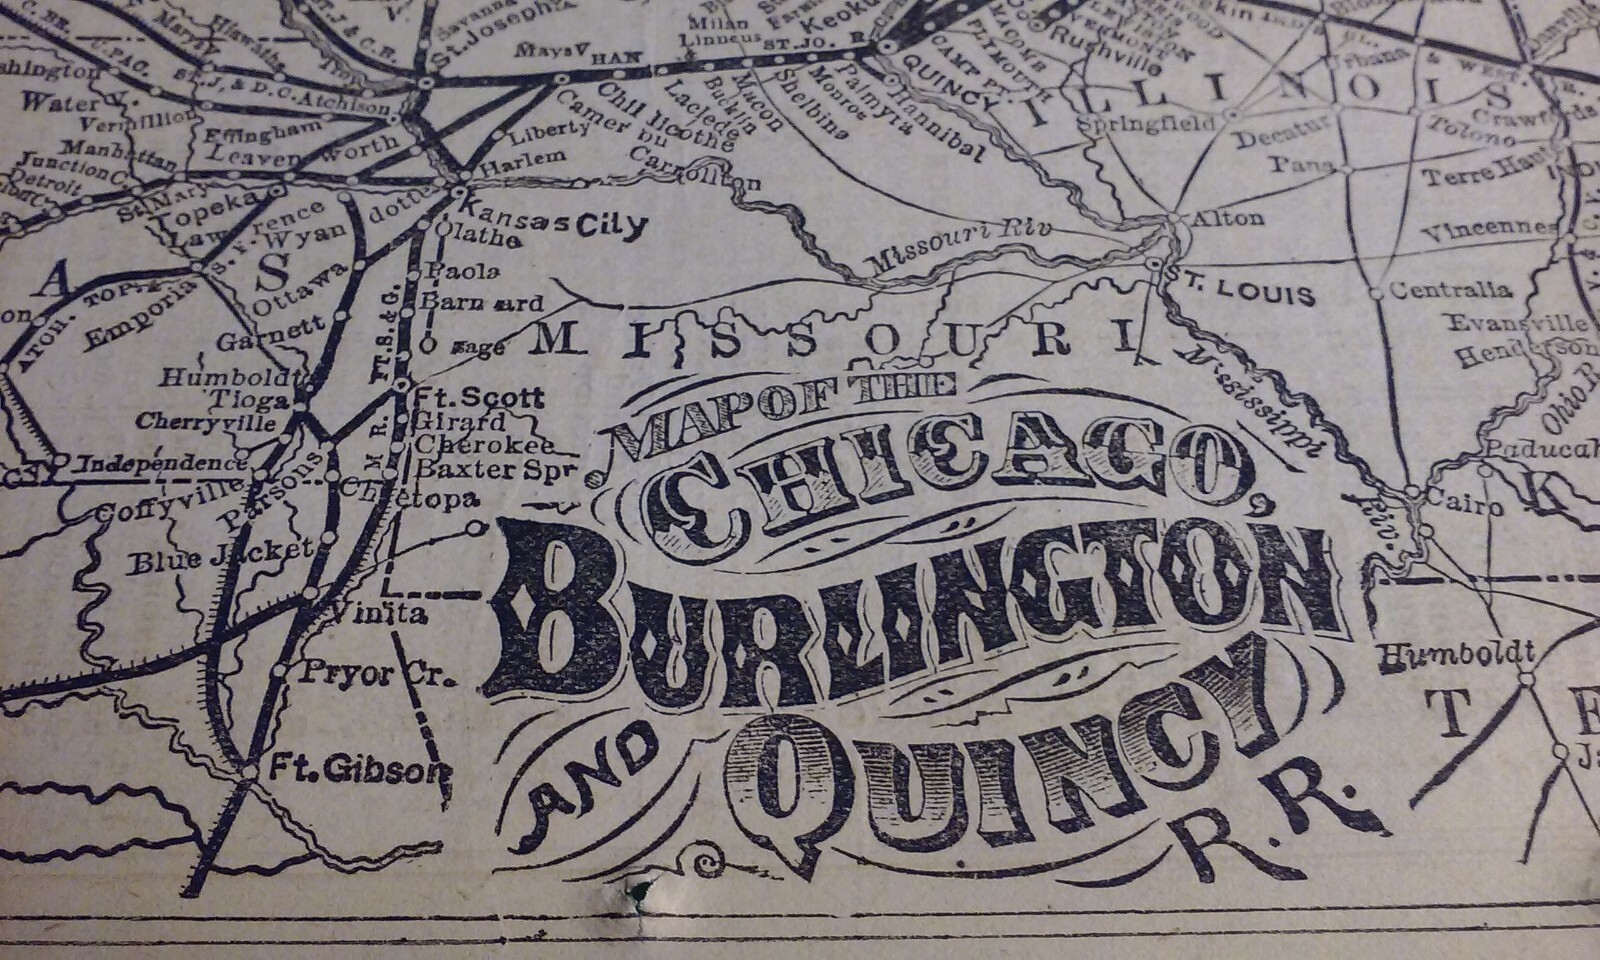 C. BR.
U. PAC.
Marysv.
Hiawatha
Troy
ST. J & C. R.
Savanna
St. Joseph
Maysv
HAN
ST. JO. R
Milan
Linneus
Keoku
QUINCY
CAMP PT.
PLYMOUTH
MACOMB
VERMONT
Rushville
Urbana
Danville
& WEST.
shington
ST. J, & D. C.
Atchison
Water V.
Vermillion
Effingham
Leaven worth
Manhattan
Junction C.
Detroit
St. Mary
Topeka
Law rence
Wyan dotte
Liberty
Harlem
Camer on
Chil licothe
Laclede
Bucklin
Macon
Shelbina
Monroe
Palmyra
Hannibal
Carrollton
ILLINOIS
Springfield
Decatur
Tolono
Pana
Terre Haut
Crawfords
Alton
Vincennes
Kansas City
Olathe
Missouri Riv
Paola
Barn ard
O sage
A
S
ATCH. TOP.
S. F.
Emporia
Ottawa
Garnett
FT. S. & G.
M R.
ST. LOUIS
Centralia
Evansville
Henderson
Ohio R
MISSOURI
Mississippi
Riv.
Humboldt
Tioga
Cherryville
Ft. Scott
Girard
Cherokee
Baxter Spr
Chetopa
Independence
Coffyville
Parsons
Blue Jacket
Vinita
Pryor Cr.
Ft. Gibson
Paducah
K
Cairo
Humboldt
T E
MAP OF THE
CHICAGO,
BURLINGTON
AND QUINCY
R. R.